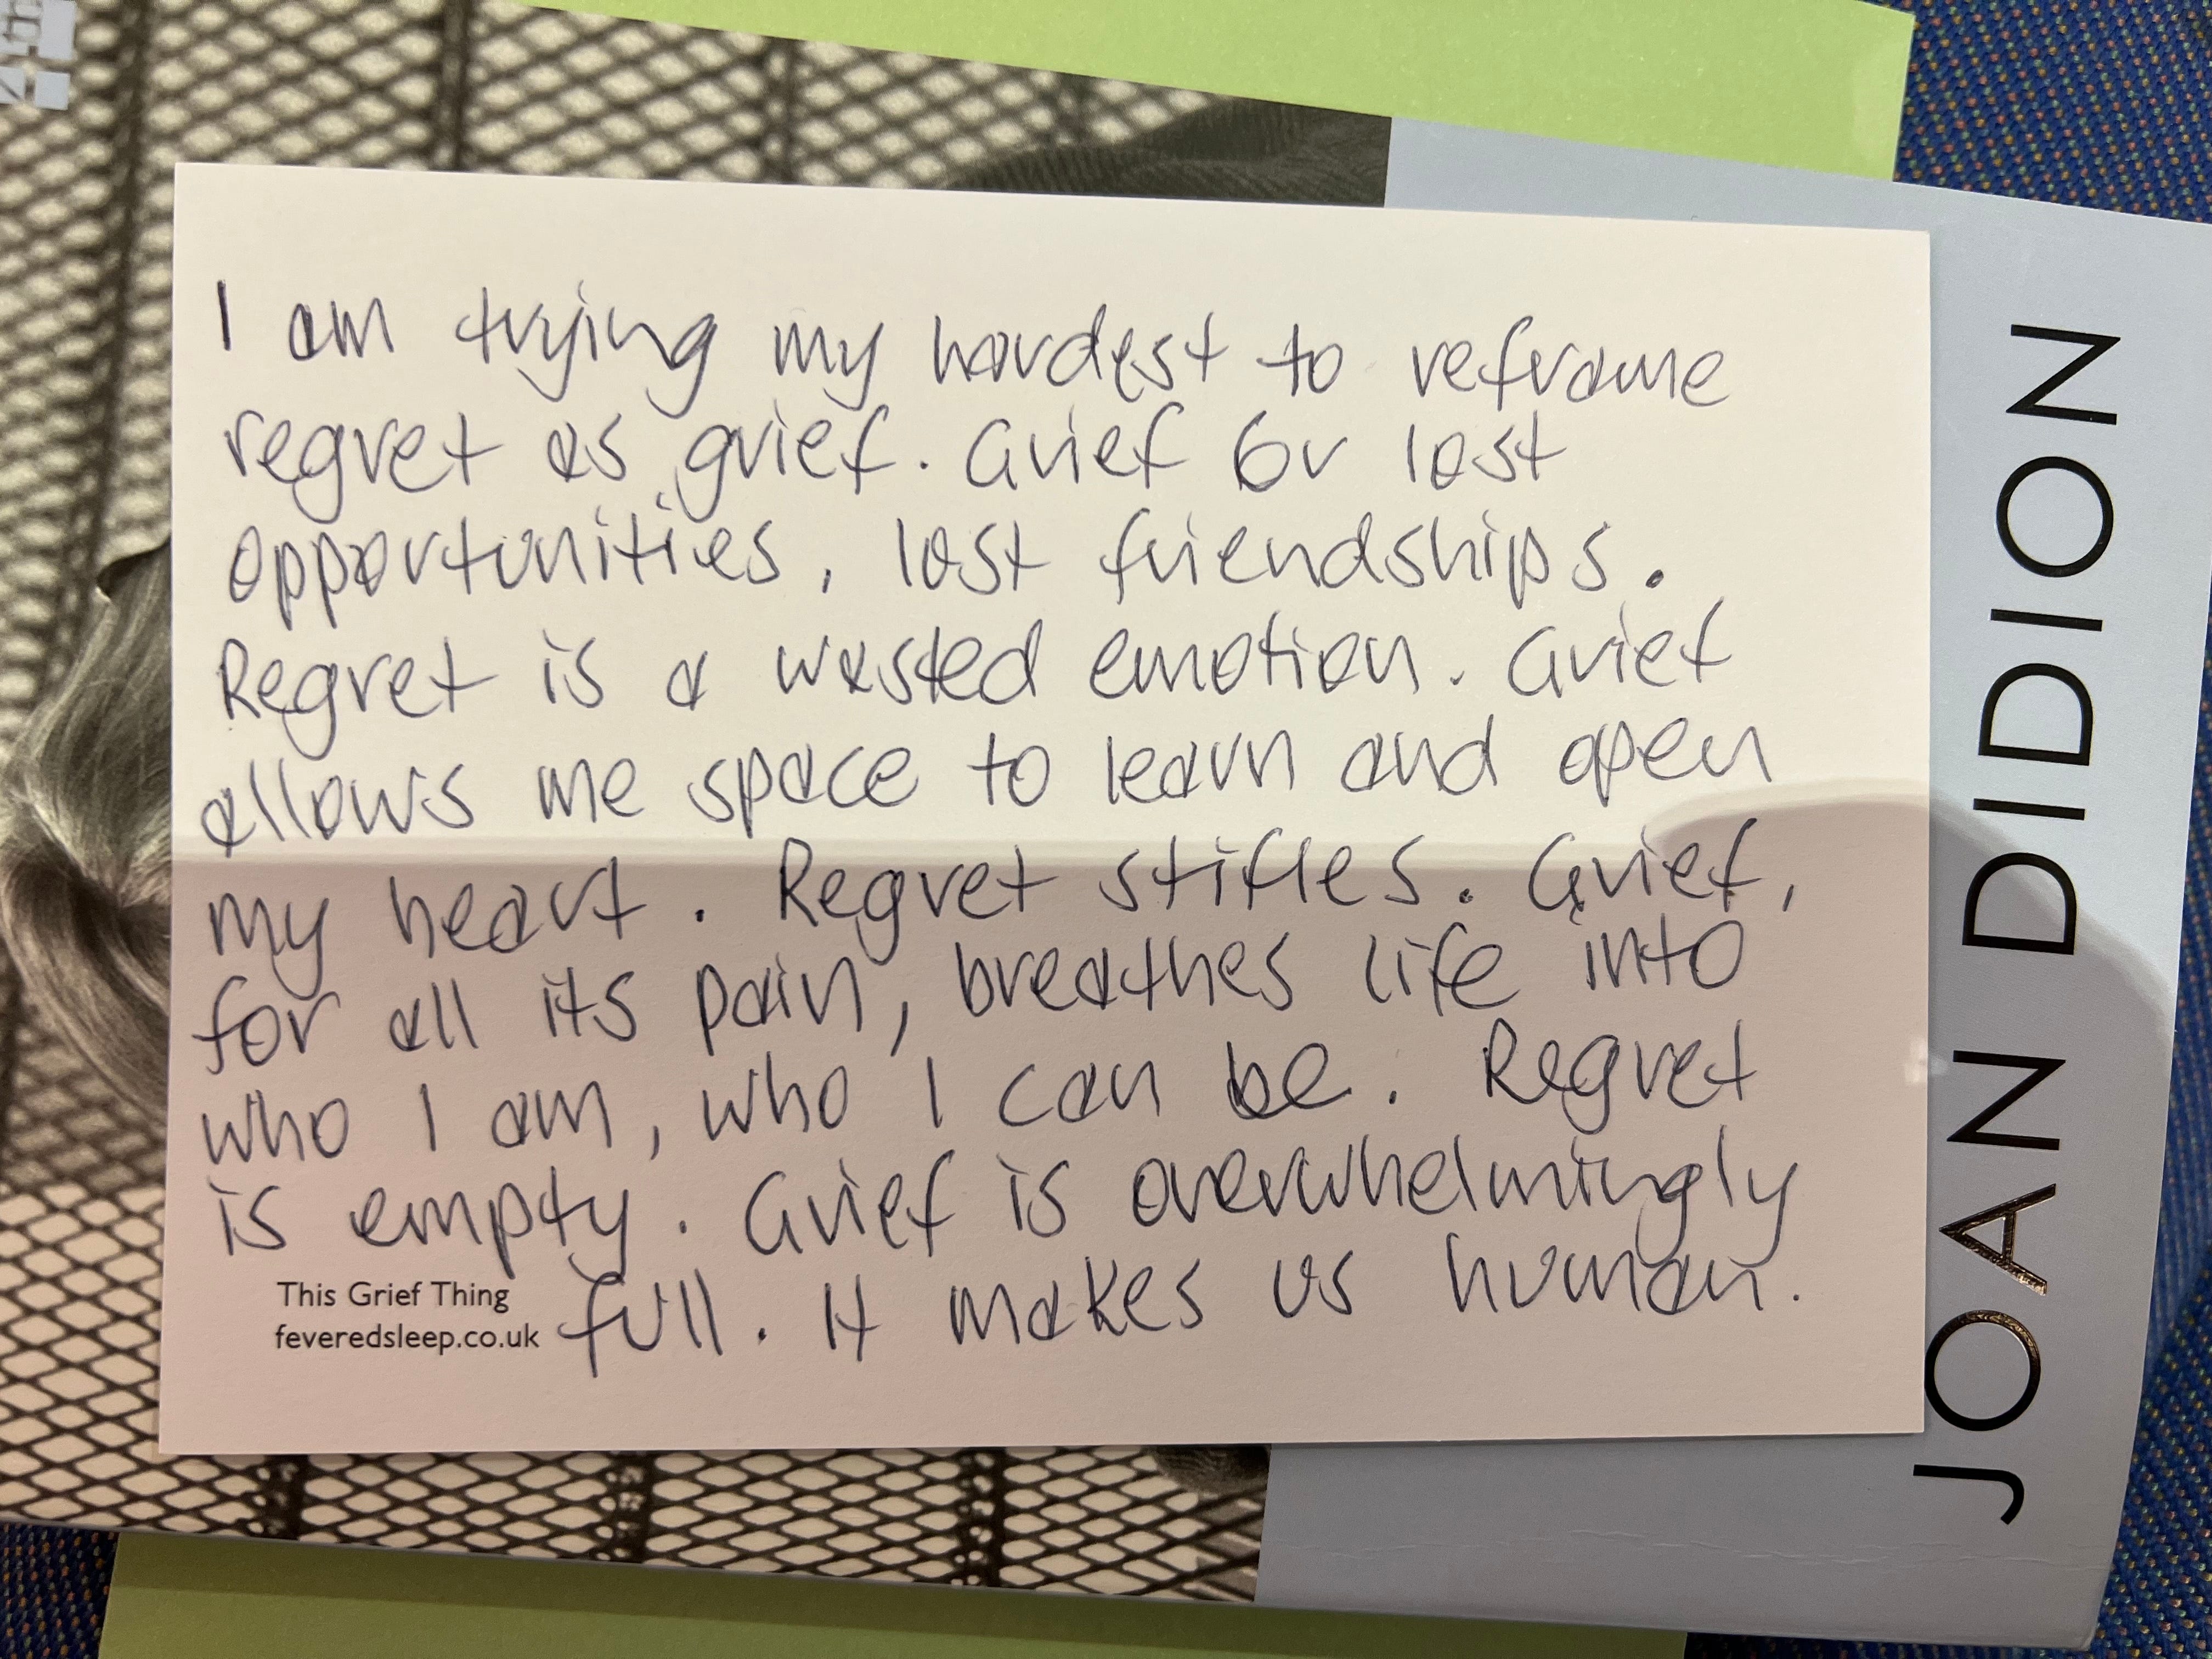 I am trying my hardest to reframe
regret as grief. Grief for lost
opportunities, lost friendships.
Regret is a wasted emotion. Grief
allows me space to learn and open
my heart. Regret stifles. Grief,
for all its pain, breathes life into
who I am, who I can be. Regret
is empty. Grief is overwhelmingly
full. It makes us human.
This Grief Thing
feveredsleep.co.uk
JOAN DIDION